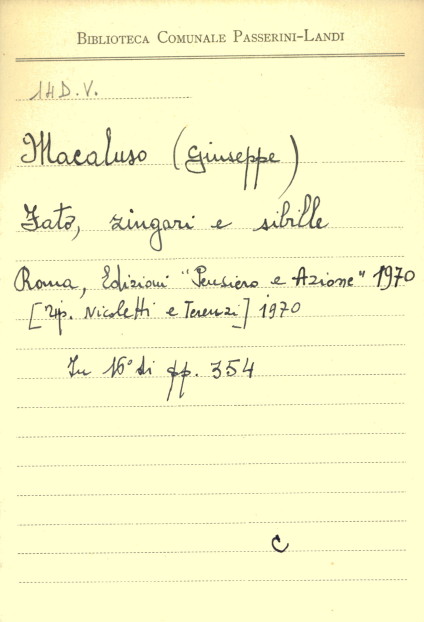 BIBLIOTECA COMUNALE PASSERINI-LANDI
14 D. V.
Macaluso (Giuseppe)
Fato, zingari e sibille
Roma, Edizioni "Pensiero e Azione" 1970
[Tip. Nicoletti e Terenzi] 1970
In 16° di pp. 354
C